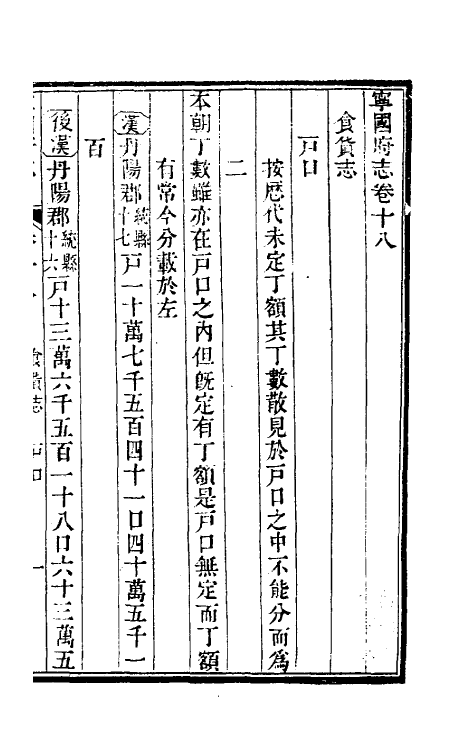 寧國府志卷十八
食貨志
戸口
按歷代未定丁額其丁數散見於戸口之中不能分而爲
二
本朝丁數雖亦在戸口之內但既定有丁額是戸口無定而丁額
有常今分載於左
漢丹陽郡統縣十七戸一十萬七千五百四十一口四十萬五千一
百
後漢丹陽郡統縣十六戸十三萬六千五百一十八口六十三萬五
食貨志 戸口 一